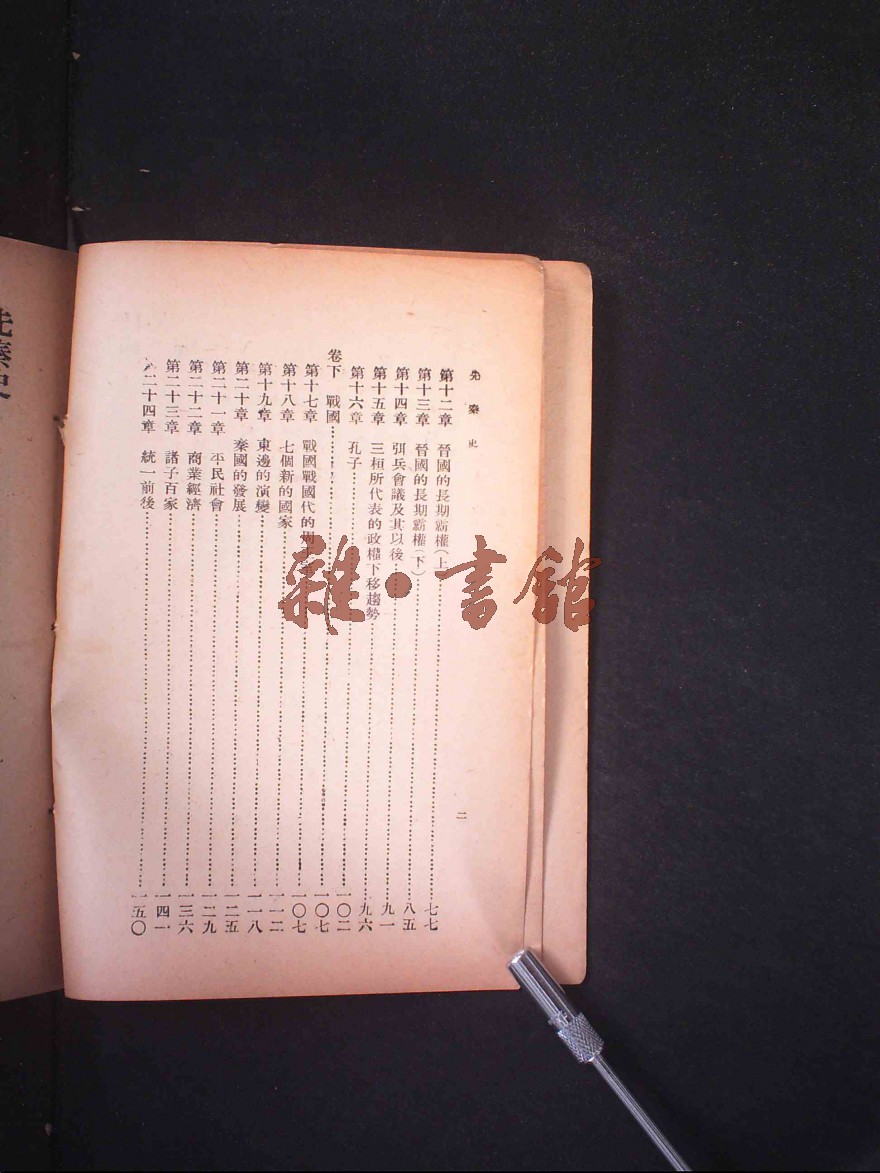 先秦史
二
第十二章 晉國的長期霸權（上）⋯⋯七七
第十三章 晉國的長期霸權（下）⋯⋯八五
第十四章 弭兵會議及其以後⋯⋯九一
第十五章 三桓所代表的政權下移趨勢⋯⋯九六
第十六章 孔子⋯⋯一〇二
卷下 戰國⋯⋯一〇七
第十七章 戰國戰國代的⋯⋯一〇七
第十八章 七個新的國家⋯⋯一一二
第十九章 東邊的演變⋯⋯一一八
第二十章 秦國的發展⋯⋯一二五
第二十一章 平民社會⋯⋯一二九
第二十二章 商業經濟⋯⋯一三六
第二十三章 諸子百家⋯⋯一四一
二十四章 統一前後⋯⋯一五〇
雜·書館
先秦史